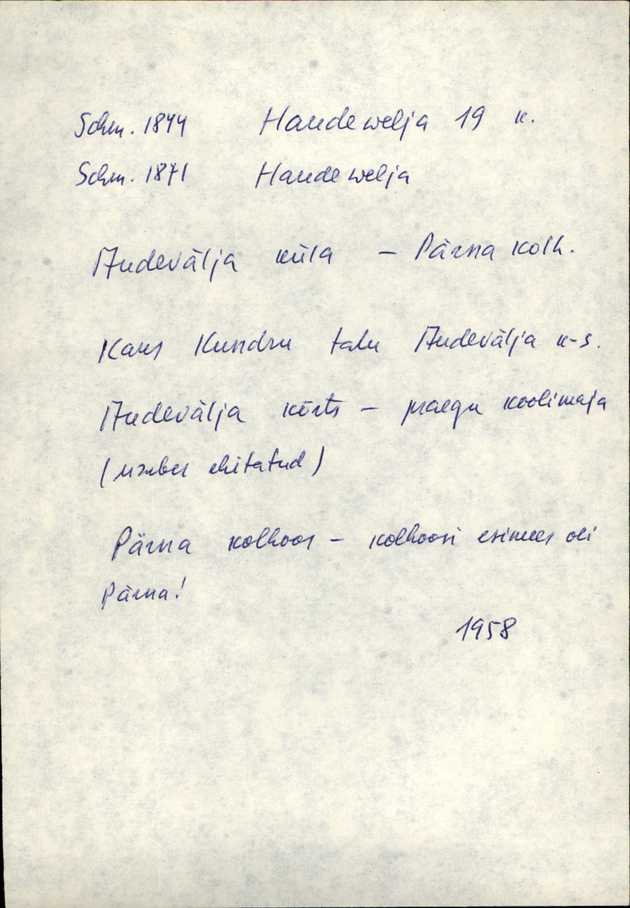 Schm. 1844 Haudewelja 19 k.
Schm. 1871 Haudewelja
Audevälja küla – Pärna kolh.
Kaus Kundru talu Audevälja k-s.
Audevälja kõrts – praegu koolimaja
(ümber ehitatud)
Pärna kolhoos – kolhoosi esimees oli
Pärna!
1958